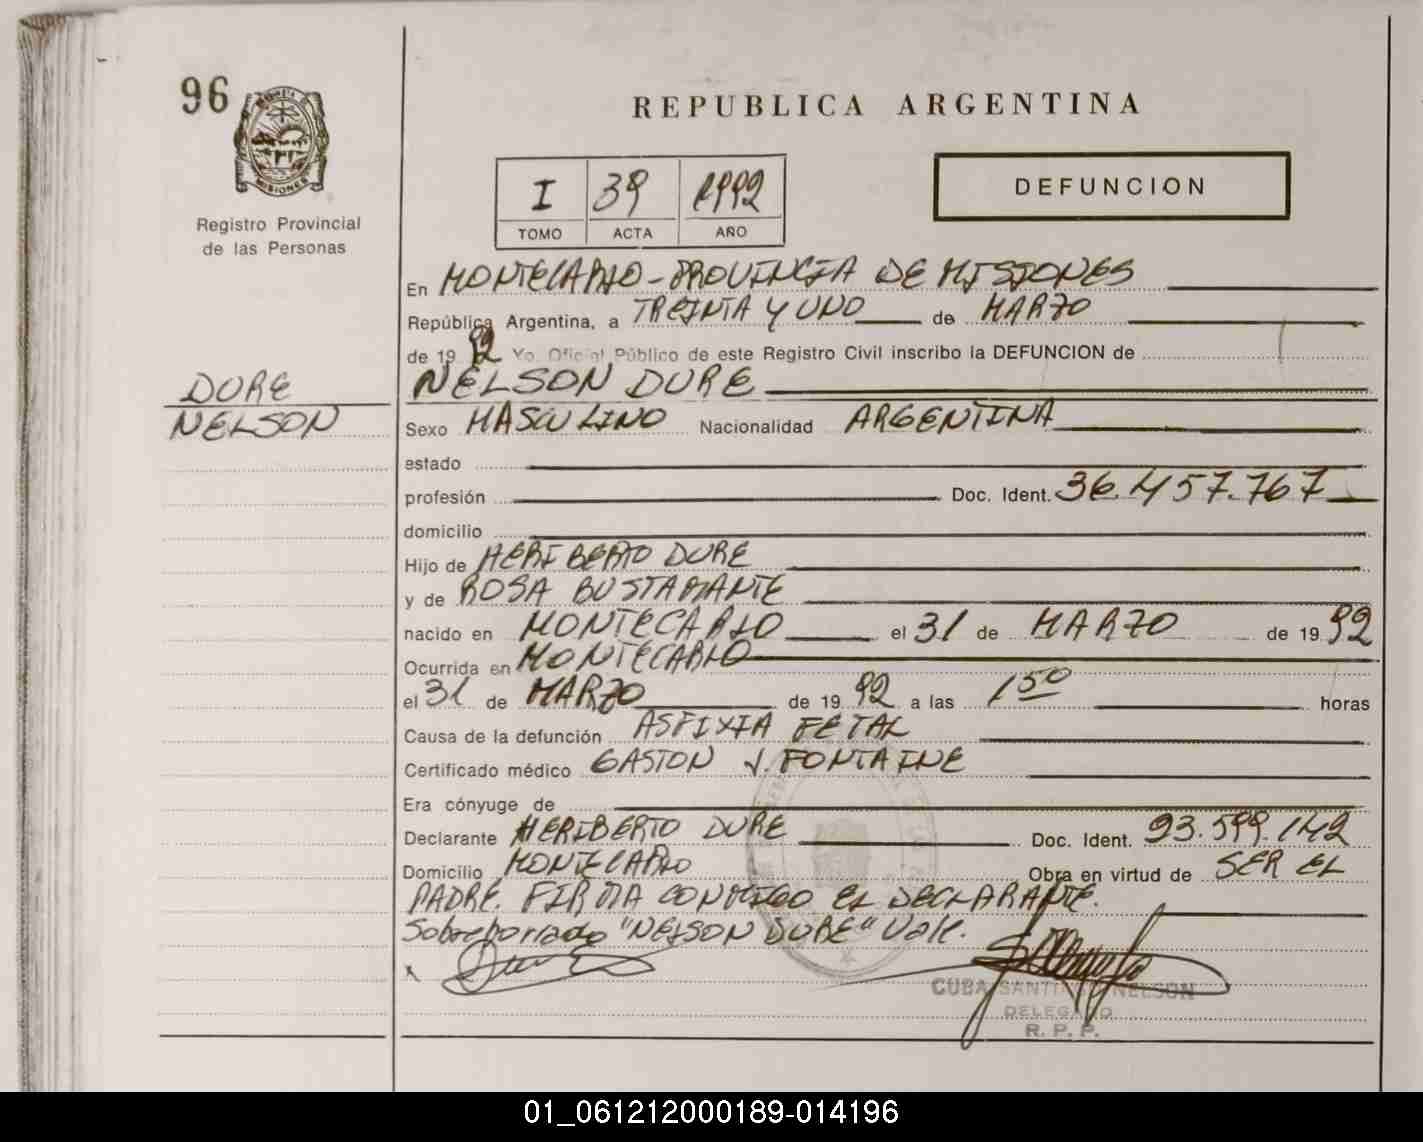 96
REPUBLICA ARGENTINA
MISIONES
I 39 1992
TOMO ACTA AÑO
DEFUNCION
Registro Provincial
de las Personas
En MONTECARLO - PROVINCIA DE MISIONES
República Argentina, a TREINTA Y UNO de MARZO
de 19 92 Yo, Oficial Público de este Registro Civil inscribo la DEFUNCION de
DURE
NELSON DURE
NELSON
Sexo MASCULINO Nacionalidad ARGENTINA
estado
profesión Doc. Ident. 36.457.767
domicilio
Hijo de HERIBERTO DURE
y de ROSA BUSTAMANTE
nacido en MONTECARLO el 31 de MARZO de 19 92
Ocurrida en MONTECARLO
el 31 de MARZO de 19 92 a las 1 50 horas
Causa de la defunción ASFIXIA FETAL
Certificado médico GASTON J. FONTAINE
Era cónyuge de
Declarante HERIBERTO DURE Doc. Ident. 93.599.142
Domicilio MONTECARLO Obra en virtud de SER EL
PADRE. FIRMA CONMIGO EL DECLARANTE.
Sobreborrado "NELSON DURE" Vale.
x
CUBA SANTIAGO NELSON
DELEGADO
R. P. P.
01_061212000189-014196